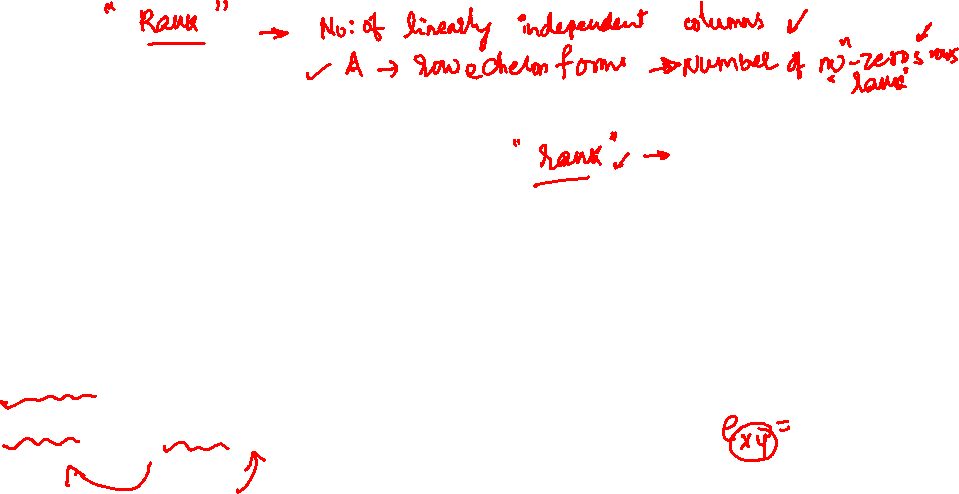 "Rank" → No: of linearly independent columns ✓
✓ A → row echelon forms → Number of non-zeros rows
"rank"
"rank" ✓ →
e xy =